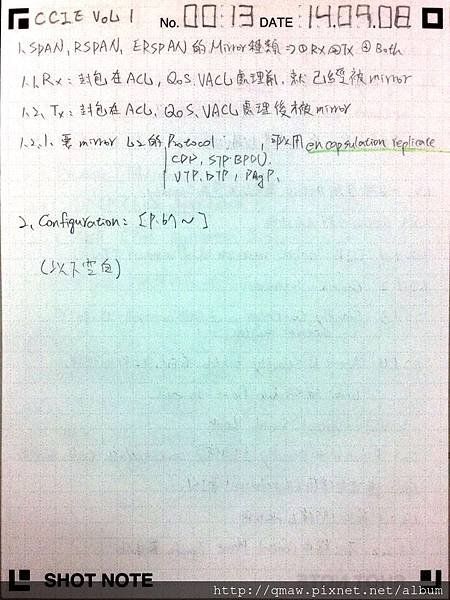 CCIE Vol 1 No. 00:13 DATE 14.09.08
1. SPAN, RSPAN, ERSPAN 的 Mirror 種類 => ① RX ② TX ③ Both
1.1. Rx: 封包在 ACL, QoS, VACL 處理前, 就已經被 mirror
1.2. Tx: 封包在 ACL, QoS, VACL 處理後才被 mirror
1.2.1. 要 mirror L2 的 Protocol , 可以用 encapsulation replicate
CDP, STP:BPDU.
VTP, DTP, PAgP.
2. Configuration: [P.67 ~ ]
(以下空白)
SHOT NOTE
http://qmaw.pixnet.net/album